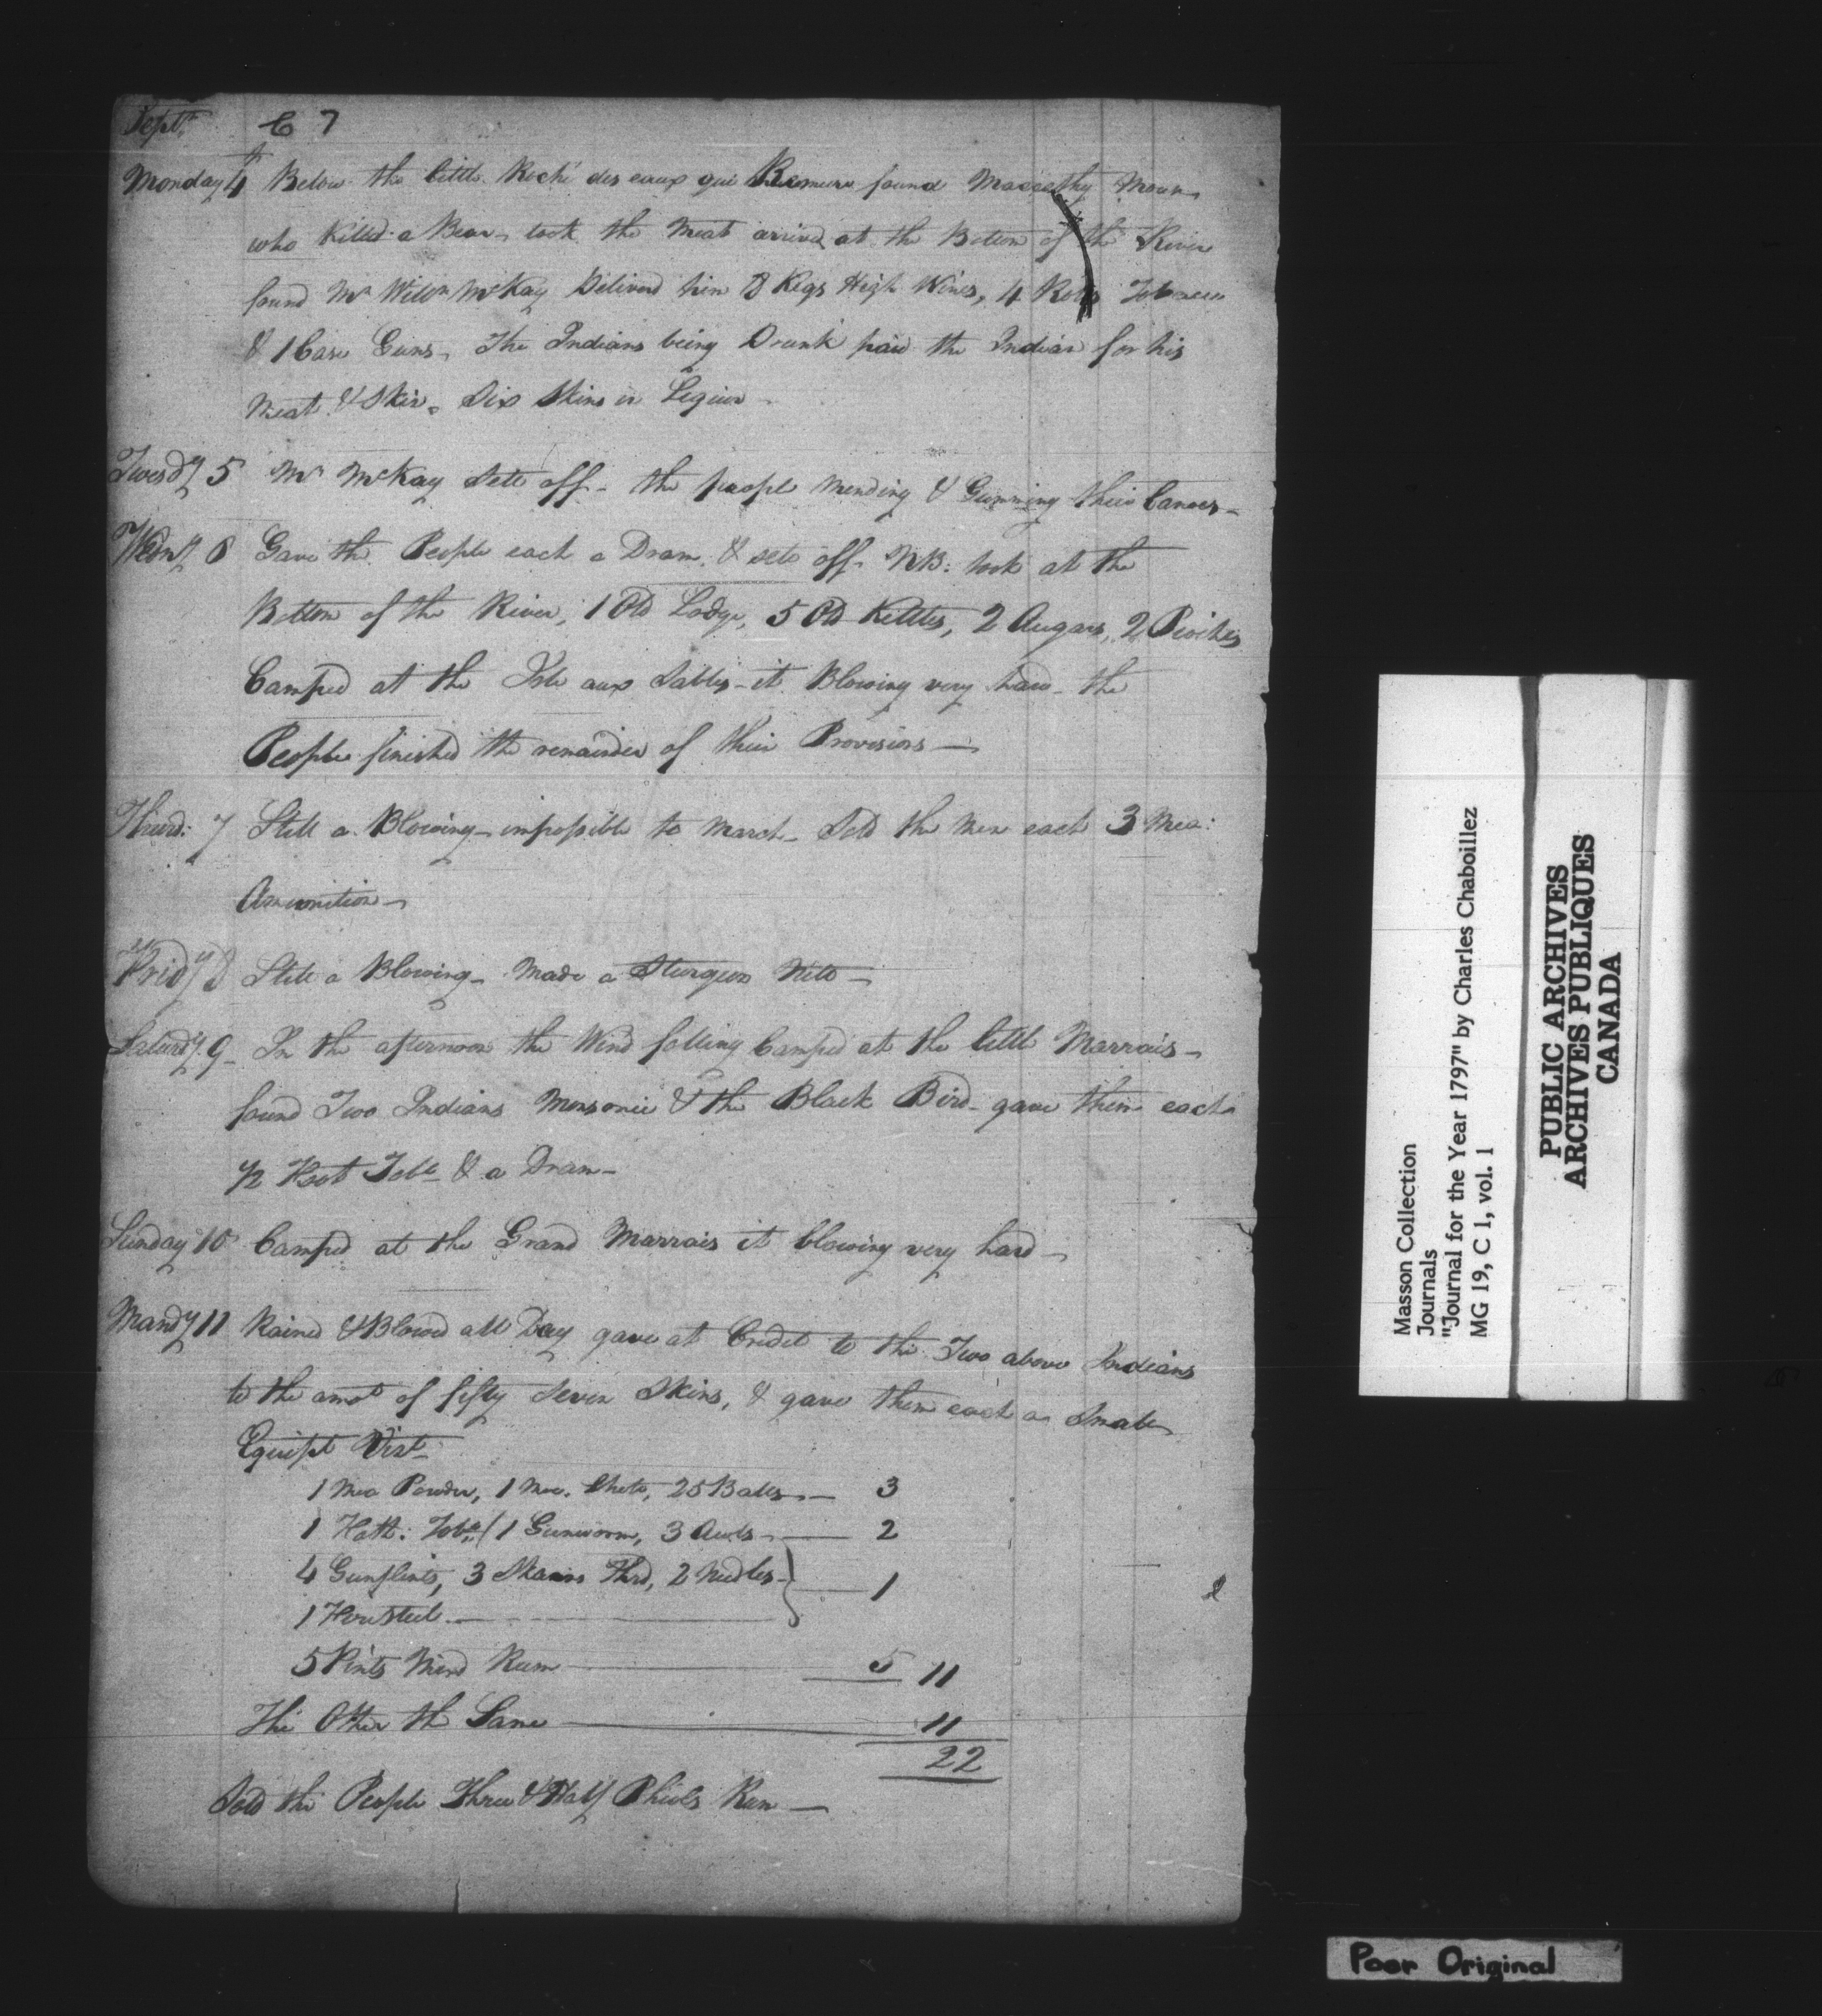 Septr. C 7
Monday 4 Below the little Roche des eaux qui Remuere found Macca
who Killed a Bear took the Meat arrived at the Bottom of the River
found Mr Willm McKay Deliverd him 8 Kegs High Wines, 4 Rolls Tobacco
& 1 Case Guns, The Indians being Drunk paid the Indian for his
Meat & Skin. Six Skins in Liquor
Tuesdy 5 Mr McKay sett off - the people Mending & Gumming their Canoes -
Wedny 6 Gave the People each a Dram, & sett off. NB: took at the
Bottom of the River, 1 Old Lodge, 5 Old Kettles, 2 Augars, 2
Camped at the Isle aux Sables - it Blowing very hard - the
People finished the remainder of their Provisions —
Thursd: 7 Still a Blowing - impossible to March - Sold the Men each 3 Mea:
Amunition -
Fridy 8 Still a Blowing - Made a Sturgeon Nett -
Saturdy 9 - In the afternoon the Wind falling Camped at the little Marrais -
found Two Indians Monsonic & the Black Bird - gave them each
1/2 Foot Tobo & a Dram -
Sunday 10 Camped at the Grand Marrais it blowing very hard -
Mandy 11 Rained & Blowed all Day gave at Credit to the Two above Indians
to the amot of fifty Seven Skins, & gave them each a Small
Equipt Vizt
1 Mea Powder, 1 Mea. Shott, 25 Balls — 3
1 Fath: Tobo. 1 Gunworm, 3 Awls — 2
4 Gunflints, 3 Skains Thrd, 2 Needles — 1
1 Firesteel —
5 Pints Mixd Rum — 5 11
The Other the Same — 11
22
Sold the People Three & Half Phiols Rum —
Masson Collection
Journals
"Journal for the Year 1797" by Charles Chaboillez
MG 19, C 1, vol. 1
PUBLIC ARCHIVES
ARCHIVES PUBLIQUES
CANADA
Poor Original